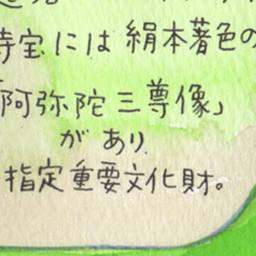 寺宝には絹本著色の
「阿弥陀三尊像」
があり
指定重要文化財。